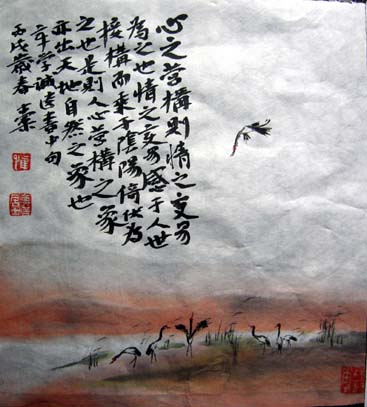 心之营構則情之变易
為之也情之变易感于人世
接構而乘于陰陽倚伏為
之也是則人心营構之象
亦出天地自然之象也
章学诚遗書中句
丙戌歲春